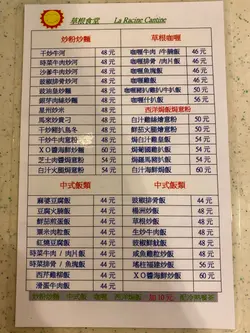 草根食堂 La Racine Cantine
炒粉炒麵
干炒牛河 48 元
時菜牛肉炒河 48 元
沙爹牛肉炒河 48 元
豉椒排骨炒河 48 元
豉油皇炒麵 48 元
銀芽肉絲炒麵 50 元
星州炒米 48 元
馬來炒貴刁 48 元
干炒雞扒烏冬 50 元
干炒牛肉意粉 50 元
XO醬海鮮炒麵 60 元
芝士肉醬焗意粉 54 元
白汁火腿焗意粉 54 元
草根咖喱
咖喱牛肉 /牛腩飯 56 元
咖喱排骨 /肉片飯 46 元
咖喱魚塊飯 46 元
咖喱雞飯 46 元
咖喱雞扒/豬扒/牛扒飯 50 元
咖喱什扒飯 56 元
西洋焗飯焗意粉
白汁雞絲焗飯/意粉 50 元
鮮茄火腿焗飯/意粉 50 元
焗白汁雞皇飯 54 元
焗白汁魚塊飯 54 元
焗葡國雞飯 54 元
焗羅馬豬扒飯 54 元
白汁海鮮焗飯 60 元
中式飯類
麻婆豆腐飯 44 元
豆腐火腩飯 44 元
鮮茄煎蛋飯 44 元
粟米肉粒飯 44 元
紅燒豆腐飯 44 元
時菜牛肉 / 肉片飯 44 元
時菜排骨 / 魚塊飯 44 元
西芹雞柳飯 44 元
滑蛋牛肉飯 44 元
中式飯類
豉椒排骨飯 44 元
楊洲炒飯 48 元
草根炒飯 50 元
生炒牛肉飯 50 元
豉椒鮮魷飯 48 元
咸魚雞粒炒飯 50 元
瑤柱福建炒飯 56 元
西炒飯 56 元
XO醬海鮮炒飯 60 元